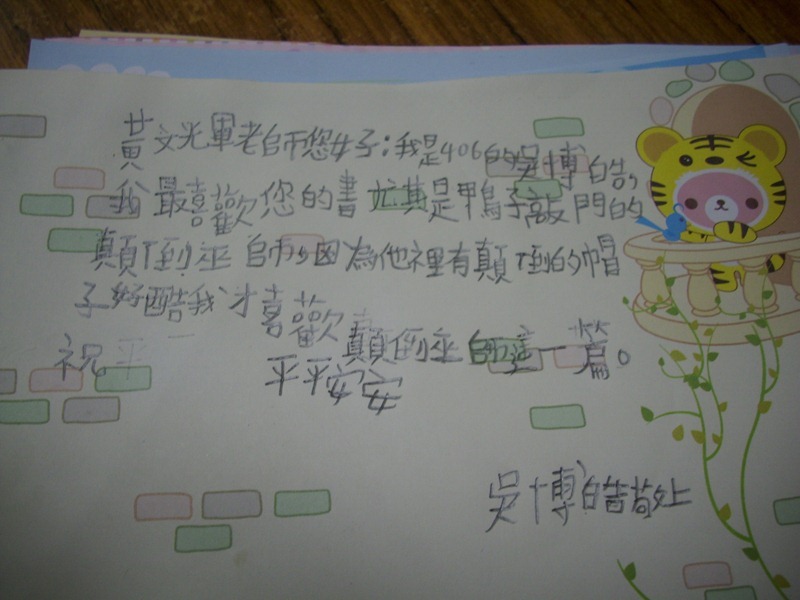 黃文光軍老師您好:我是406的吳博皓,
我最喜歡您的書尤其是鴨子敲門的
顛倒巫師,因為他裡有顛倒的帽
子好酷我才喜歡顛倒巫師這一篇。
祝 平平安安
吳博皓敬上